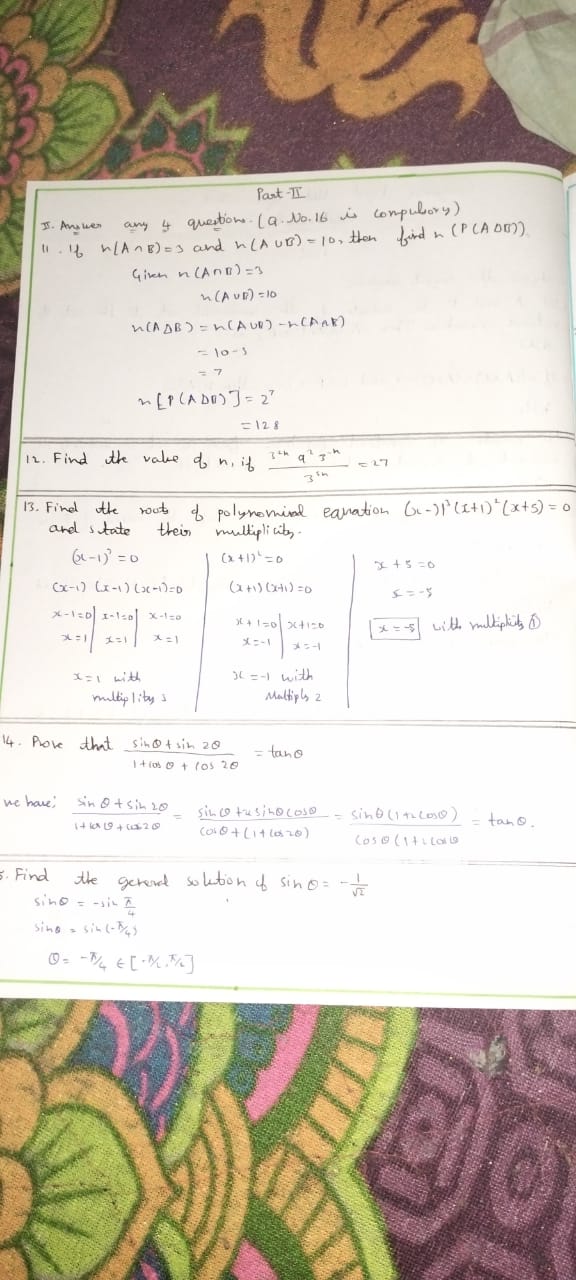 Part-II
II. Answer any 4 questions. (Q.No.16 is compulsory)
11. If n(A∩B)=3 and n(A∪B)=10, then find n(P(AΔB))
Given n(A∩B)=3
n(A∪B)=10
n(AΔB) = n(A∪B) - n(A∩B)
= 10-3
= 7
n[P(AΔB)] = 2⁷
= 128
12. Find the value of n, if (3²ⁿ 9² 3⁻ⁿ)/(3³ⁿ) = 27
13. Find the roots of polynomial equation (x-1)³(x+1)²(x+5) = 0
and state their multiplicity.
(x-1)³ = 0
(x-1) (x-1) (x-1)=0
x-1=0 | x-1=0 | x-1=0
x=1 | x=1 | x=1
x=1 with
multiplity 3
(x+1)²=0
(x+1)(x+1)=0
x+1=0 | x+1=0
x=-1 | x=-1
x=-1 with
Multiply 2
x+5=0
x=-5
x=-5 with multiplicity ①
14. Prove that (sinθ+sin 2θ)/(1+cos θ + cos 2θ) = tanθ
we have; (sin θ + sin 2θ)/(1+cosθ+cos2θ) = (sinθ+2sinθcosθ)/(cosθ+(1+cos2θ)) = (sinθ(1+2cosθ))/(cosθ(1+2cosθ = tanθ.
5. Find the general solution of sinθ = -1/√2
sinθ = -sin π/4
sinθ = sin(-π/4)
θ = -π/4 ∈ [-π/2, π/2]